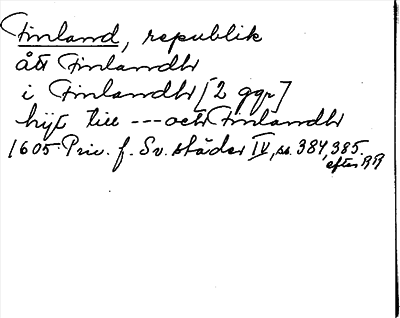 Finland, republik
ått Finlandh
i Finlandh [2 ggr]
hijt till --- och Finlandh
1605 Priv. f. Sv. städer IV, ss. 384, 385.
efter RR